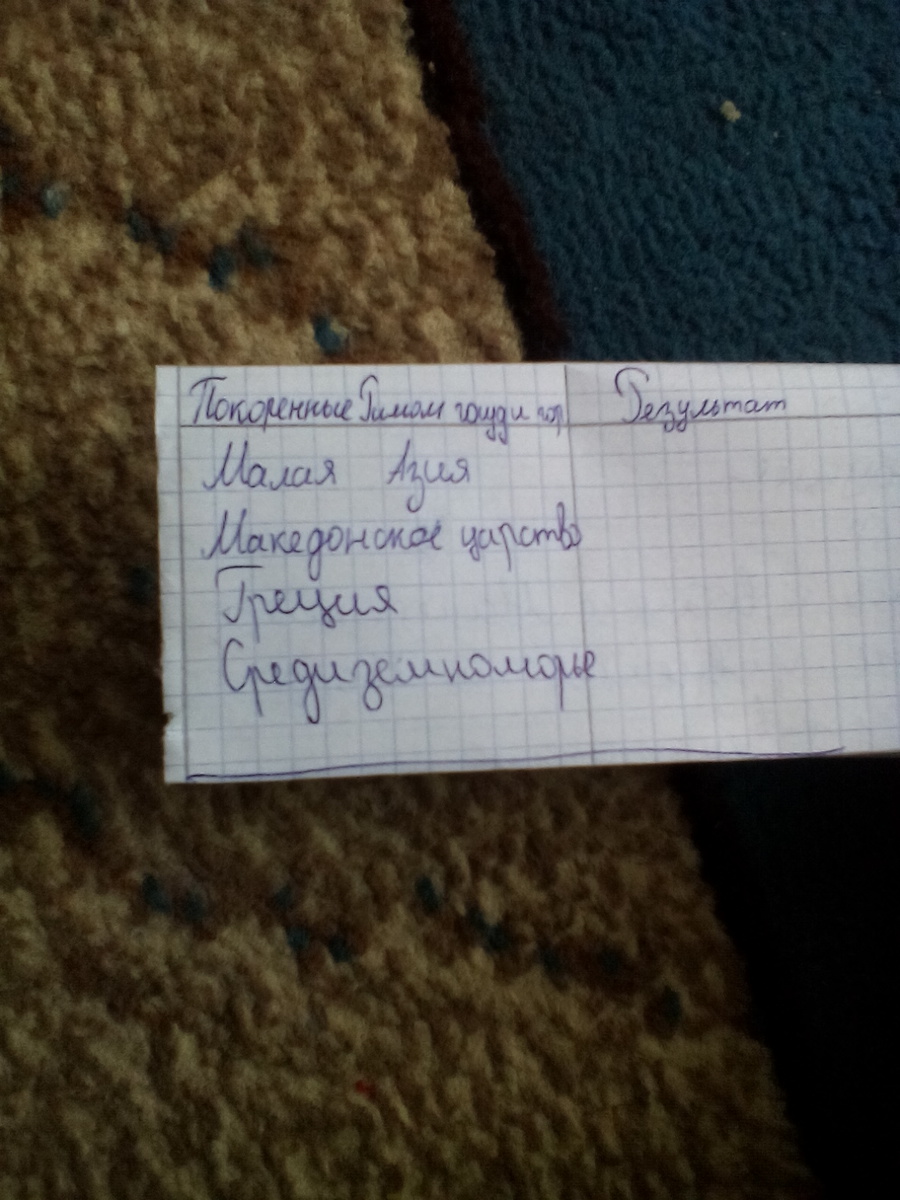 Покоренные Римом госуд и гор
Результат
Малая Азия
Македонское царство
Греция
Средиземноморье